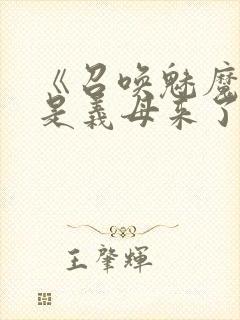 《召唤魅魔
是义母来了
王肇輝